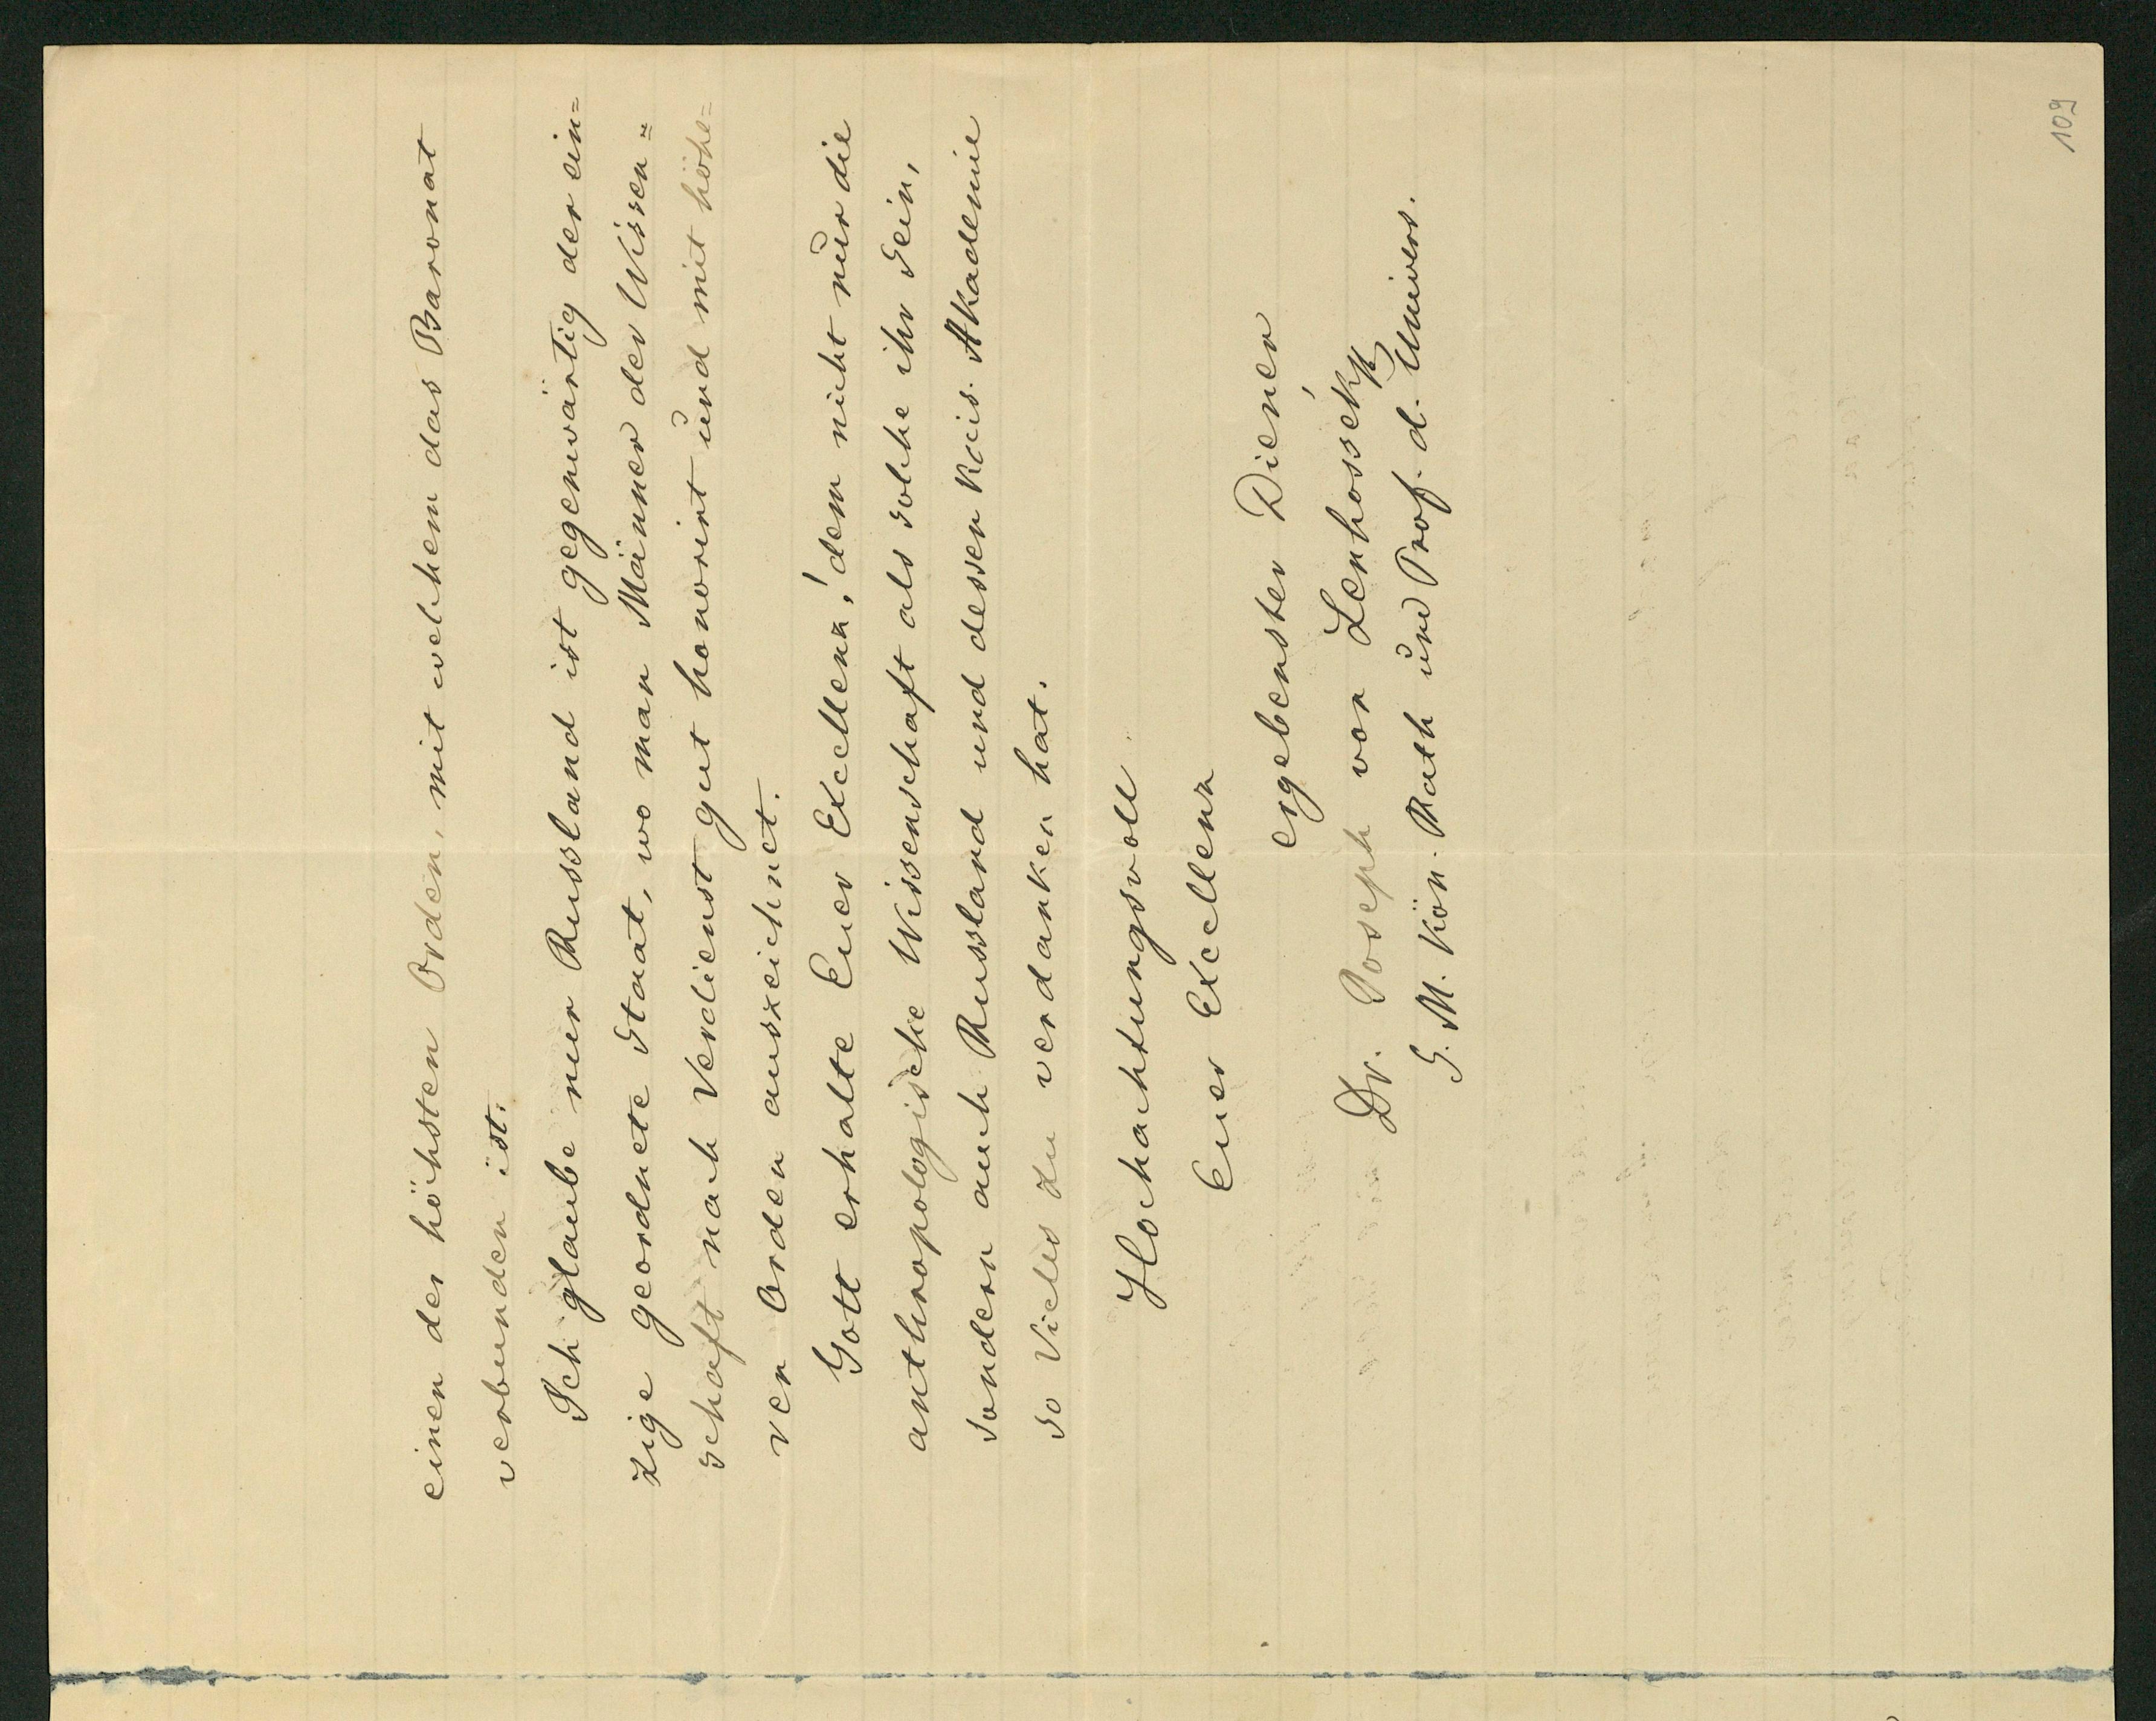 109
einen der höchsten Orden, mit welchem das Baronat
verbunden ist.
Ich glaube nur Russland ist gegenwärtig der ein=
zige geordnete Staat, wo man Männer der Wissen=
schaft nach Verdienst gut honorirt und mit höhe=
ren Orden auszeichnet.
Gott erhalte Euer Excellenz! dem nicht nur die
anthropologische Wissenschaft als solche ihr Sein,
sondern auch Russland und dessen Kais. Akademie
so Vieles zu verdanken hat.
Hochachtungsvoll
Euer Excellenz
ergebenster Diener
Dr. Joseph von Lenhossék
G. M. Kön. Rath und Prof. d. Univers.